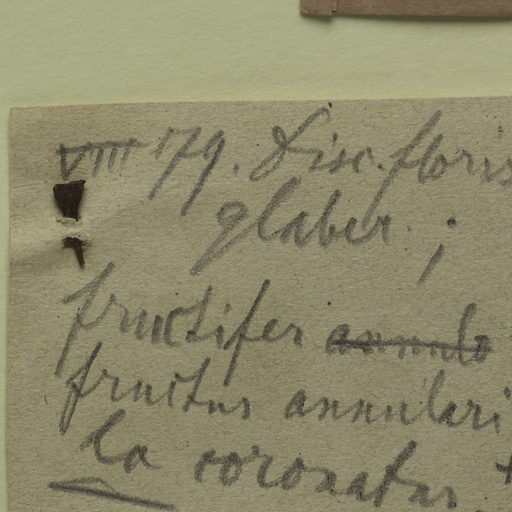 VIII 79. Disc. floris
glaber. ;
fructifer annulo
fructus annulari
coronatus